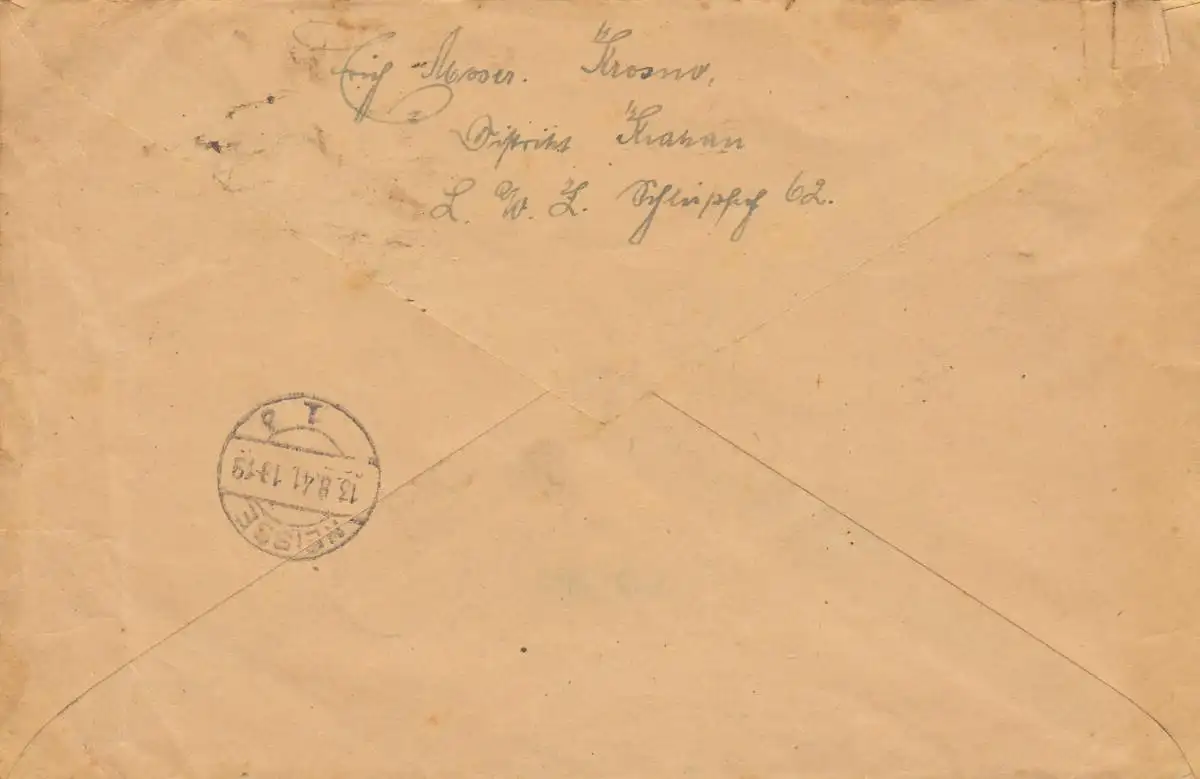 Erich Moser. Krosno,
Distrikt Krakau
L. W. L. Schließfch 62.
NEISSE
13.8.41 17-19
1